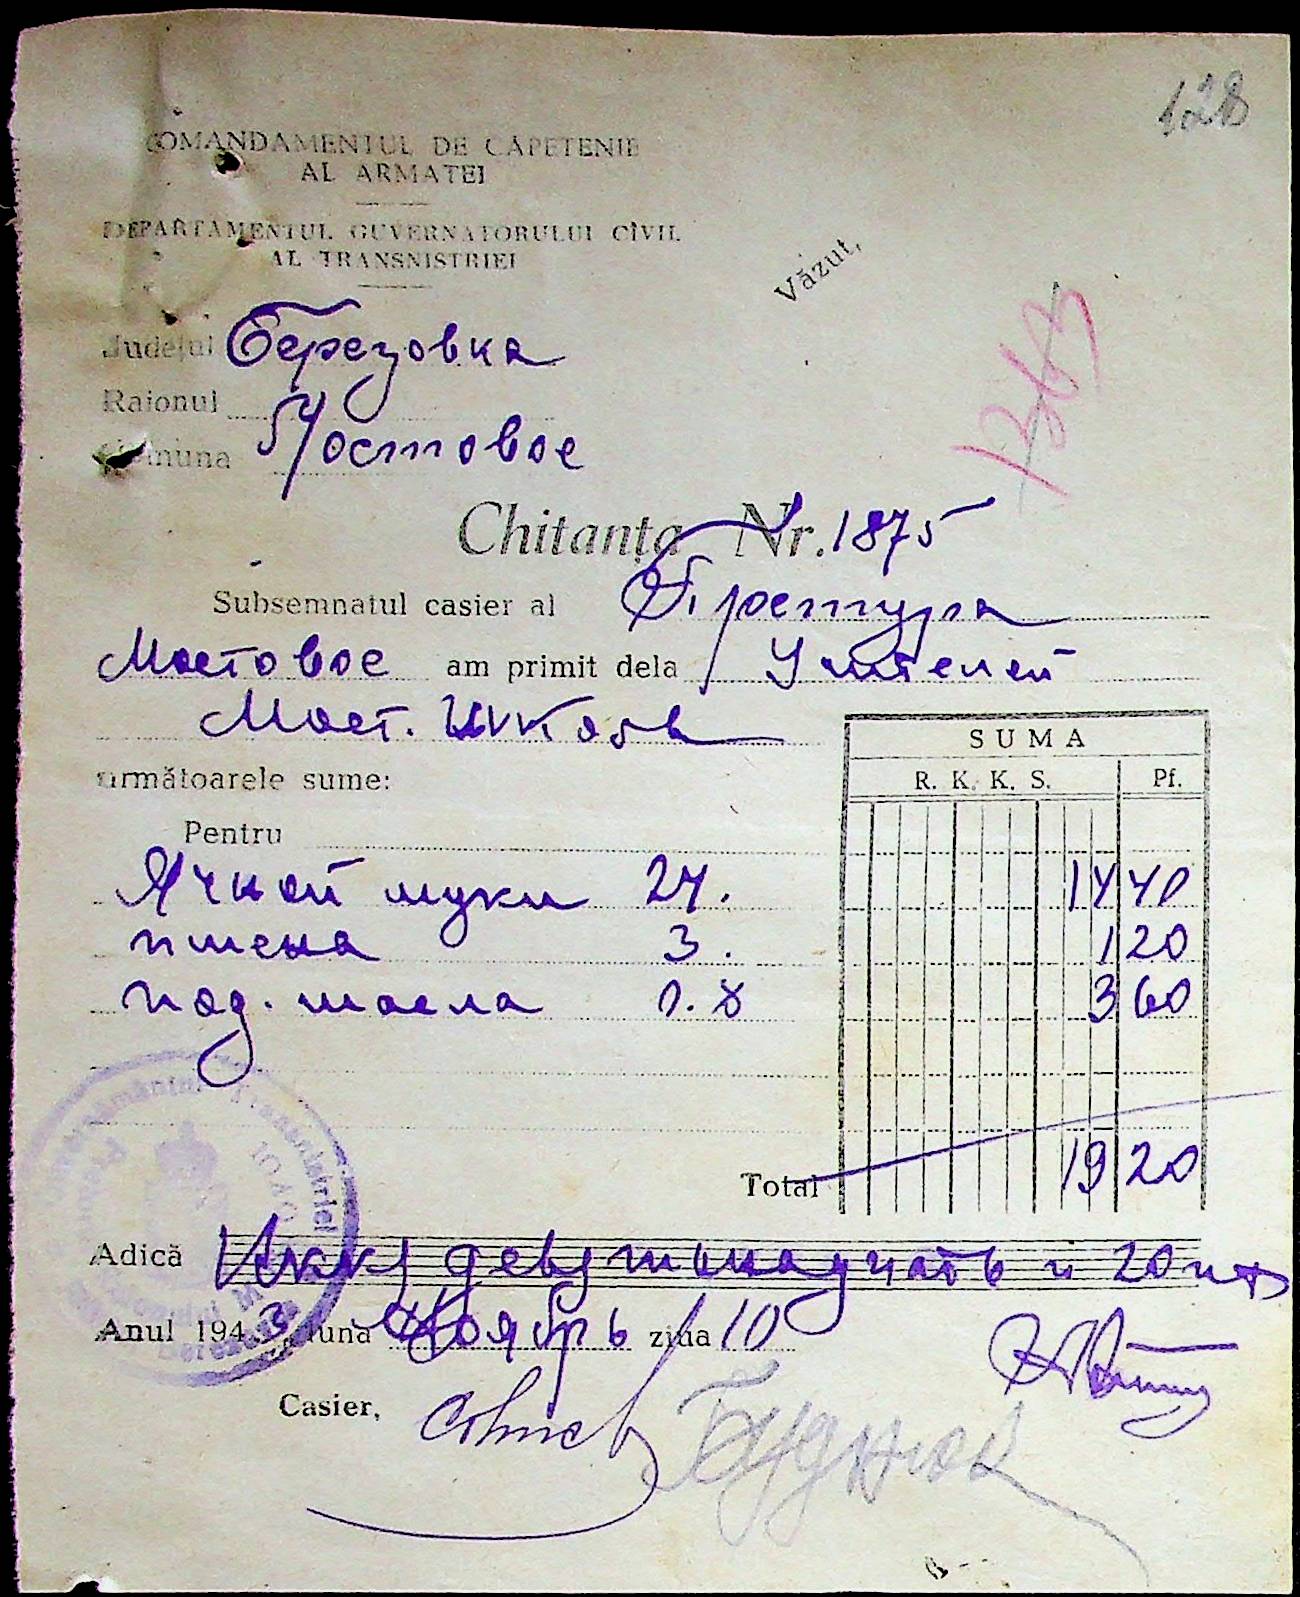 128
COMANDAMENTUL DE CAPETENIE
AL ARMATEI
DEPARTAMENTUL GUVERNATORULUI CIVIL
AL TRANSNISTRIEI
Văzut,
Județul Березовка
Raionul
Comuna Мостовое
Chitanța Nr. 1875
Subsemnatul casier al Претура
Мостовое am primit dela Учителей
Мост. школы
următoarele sume:
SUMA
R. K. K. S. Pf.
Pentru
Ячной муки 24. 14 40
пшена 3. 1 20
под. масла 0.8 3 60
Total 19 20
Adică девятнадцать и 20 пф
Anul 1943 luna Ноябрь ziua 10
Casier,